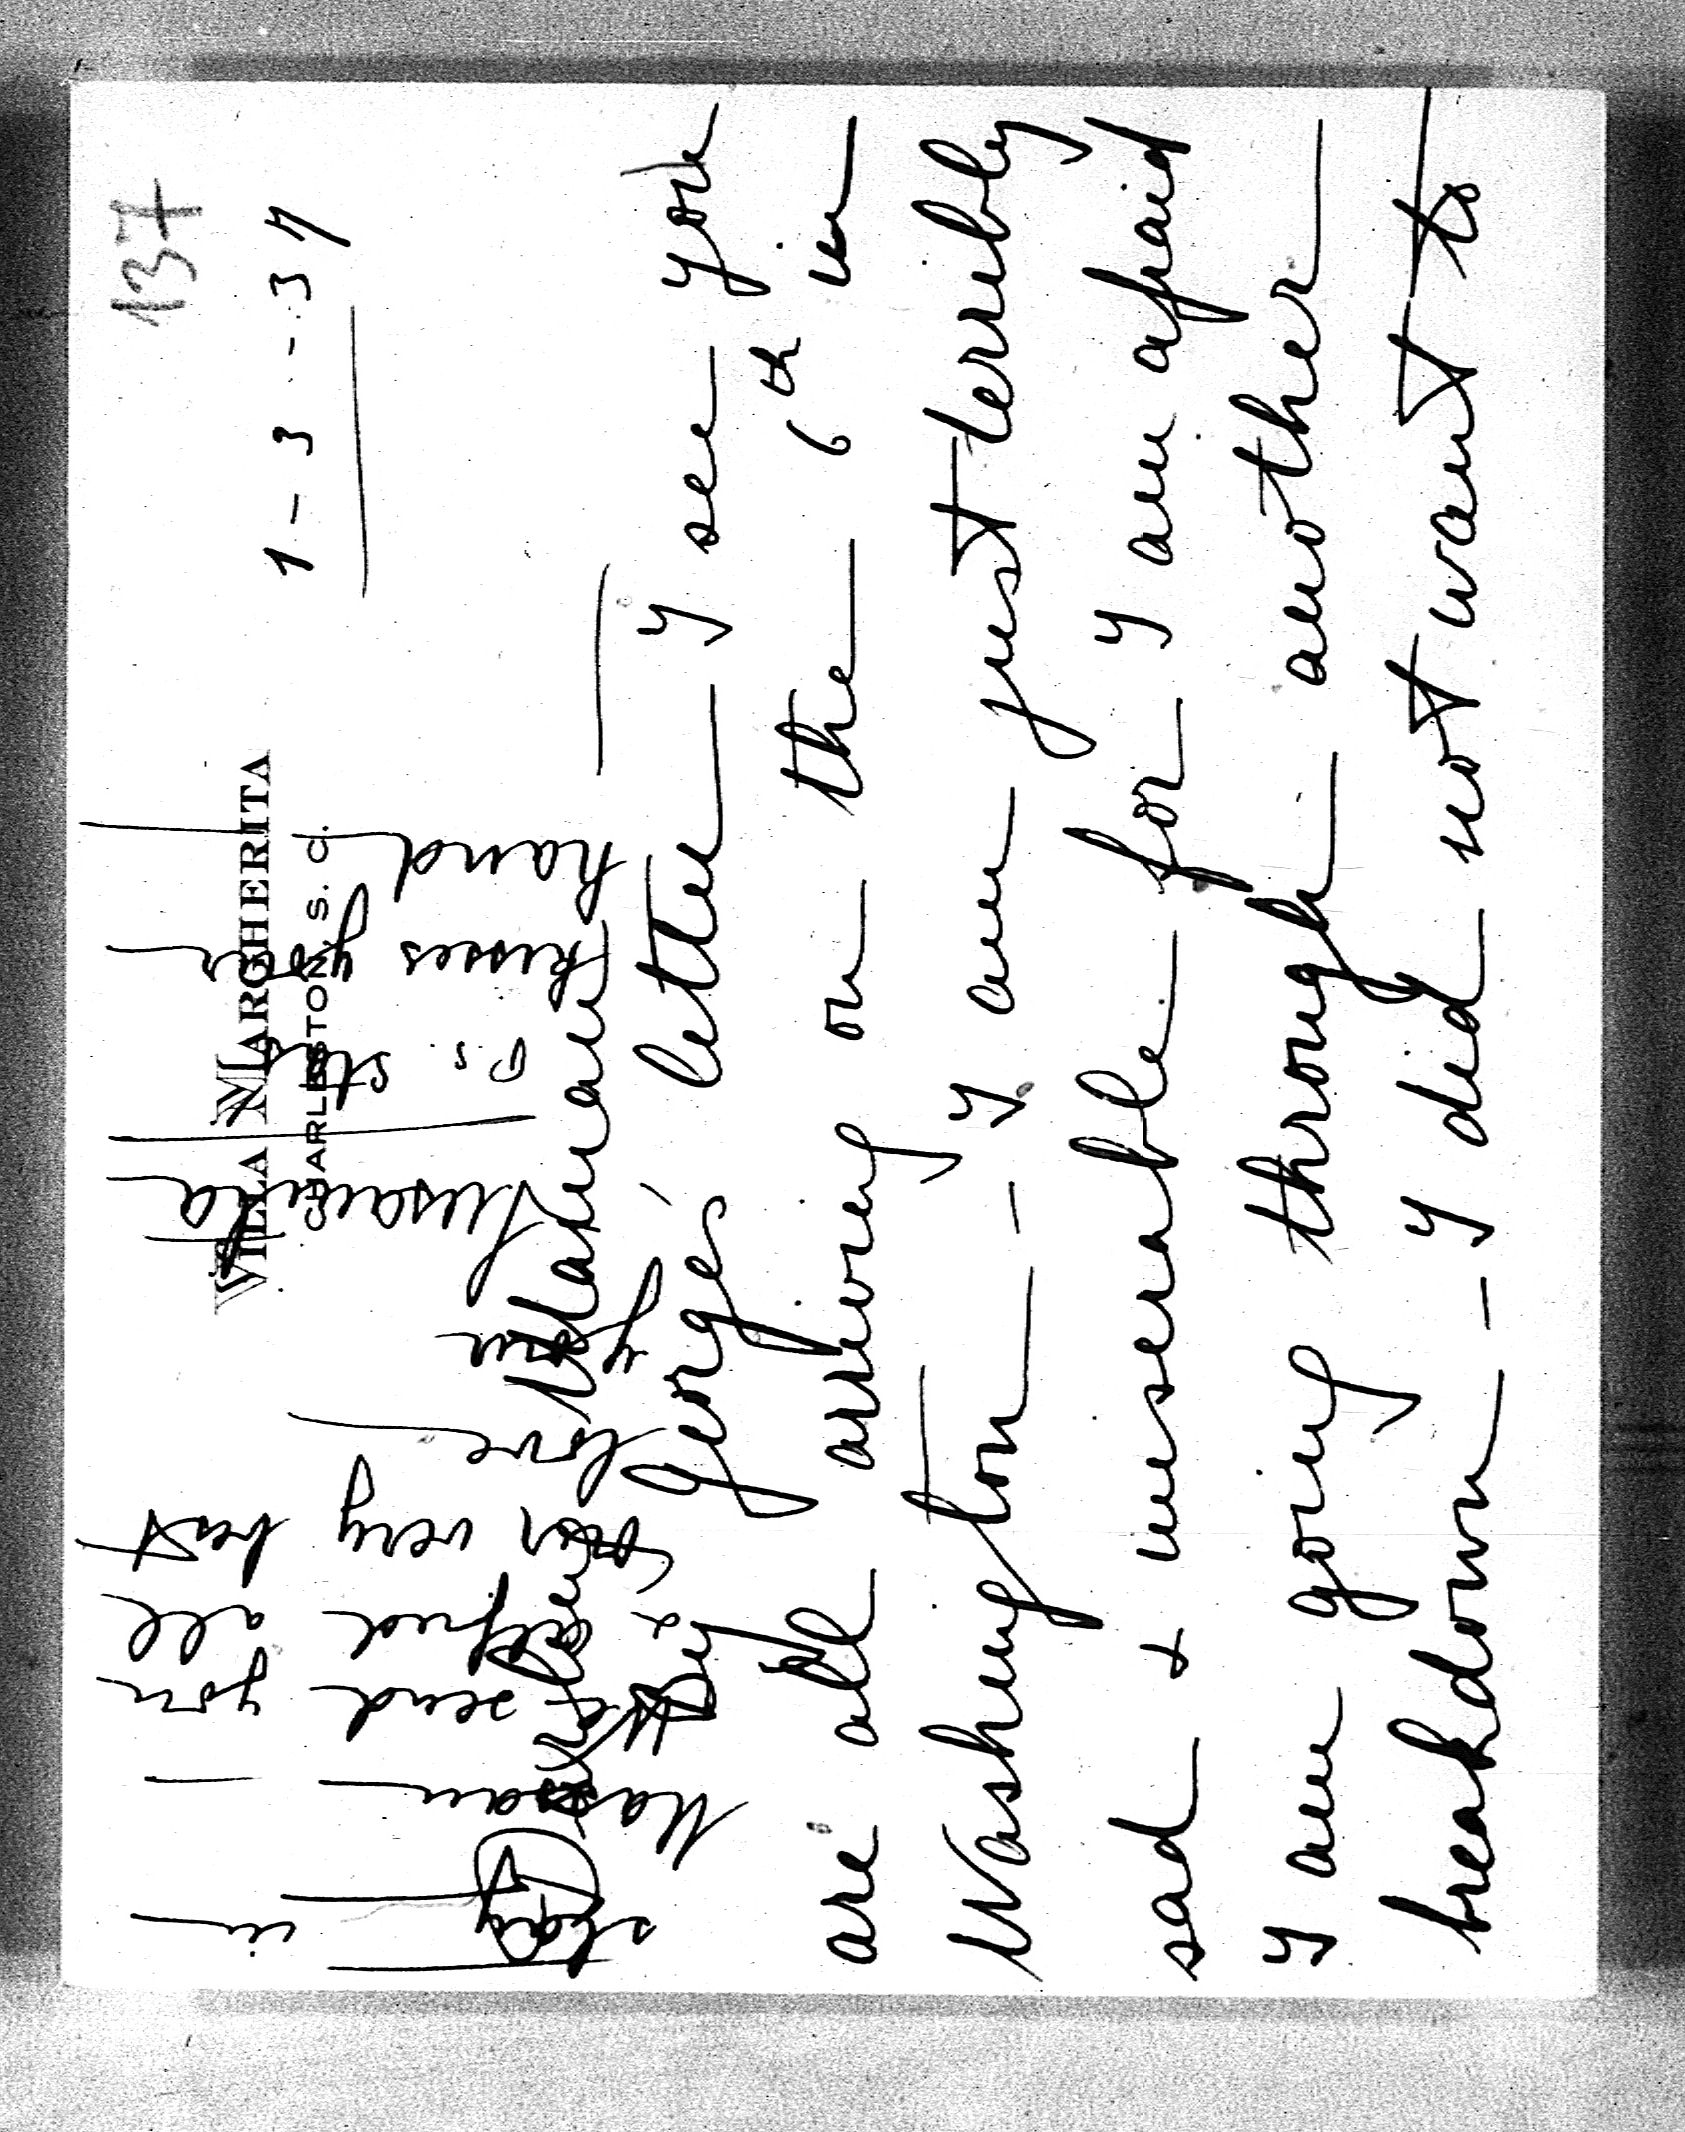 137
VILLA MARGHERITA
CHARLESTON, S. C.
1-3-37
Madame
By George, letter I see you
are all arriving on the 6th in
Washington - I am just terribly
sad & miserable for I am afraid
I am going through another
breakdown - I did not want to
stay in
Madam
& send you
Alfred all
our very best
love
your
Susanna
P.S. Sta
kisses your
hand